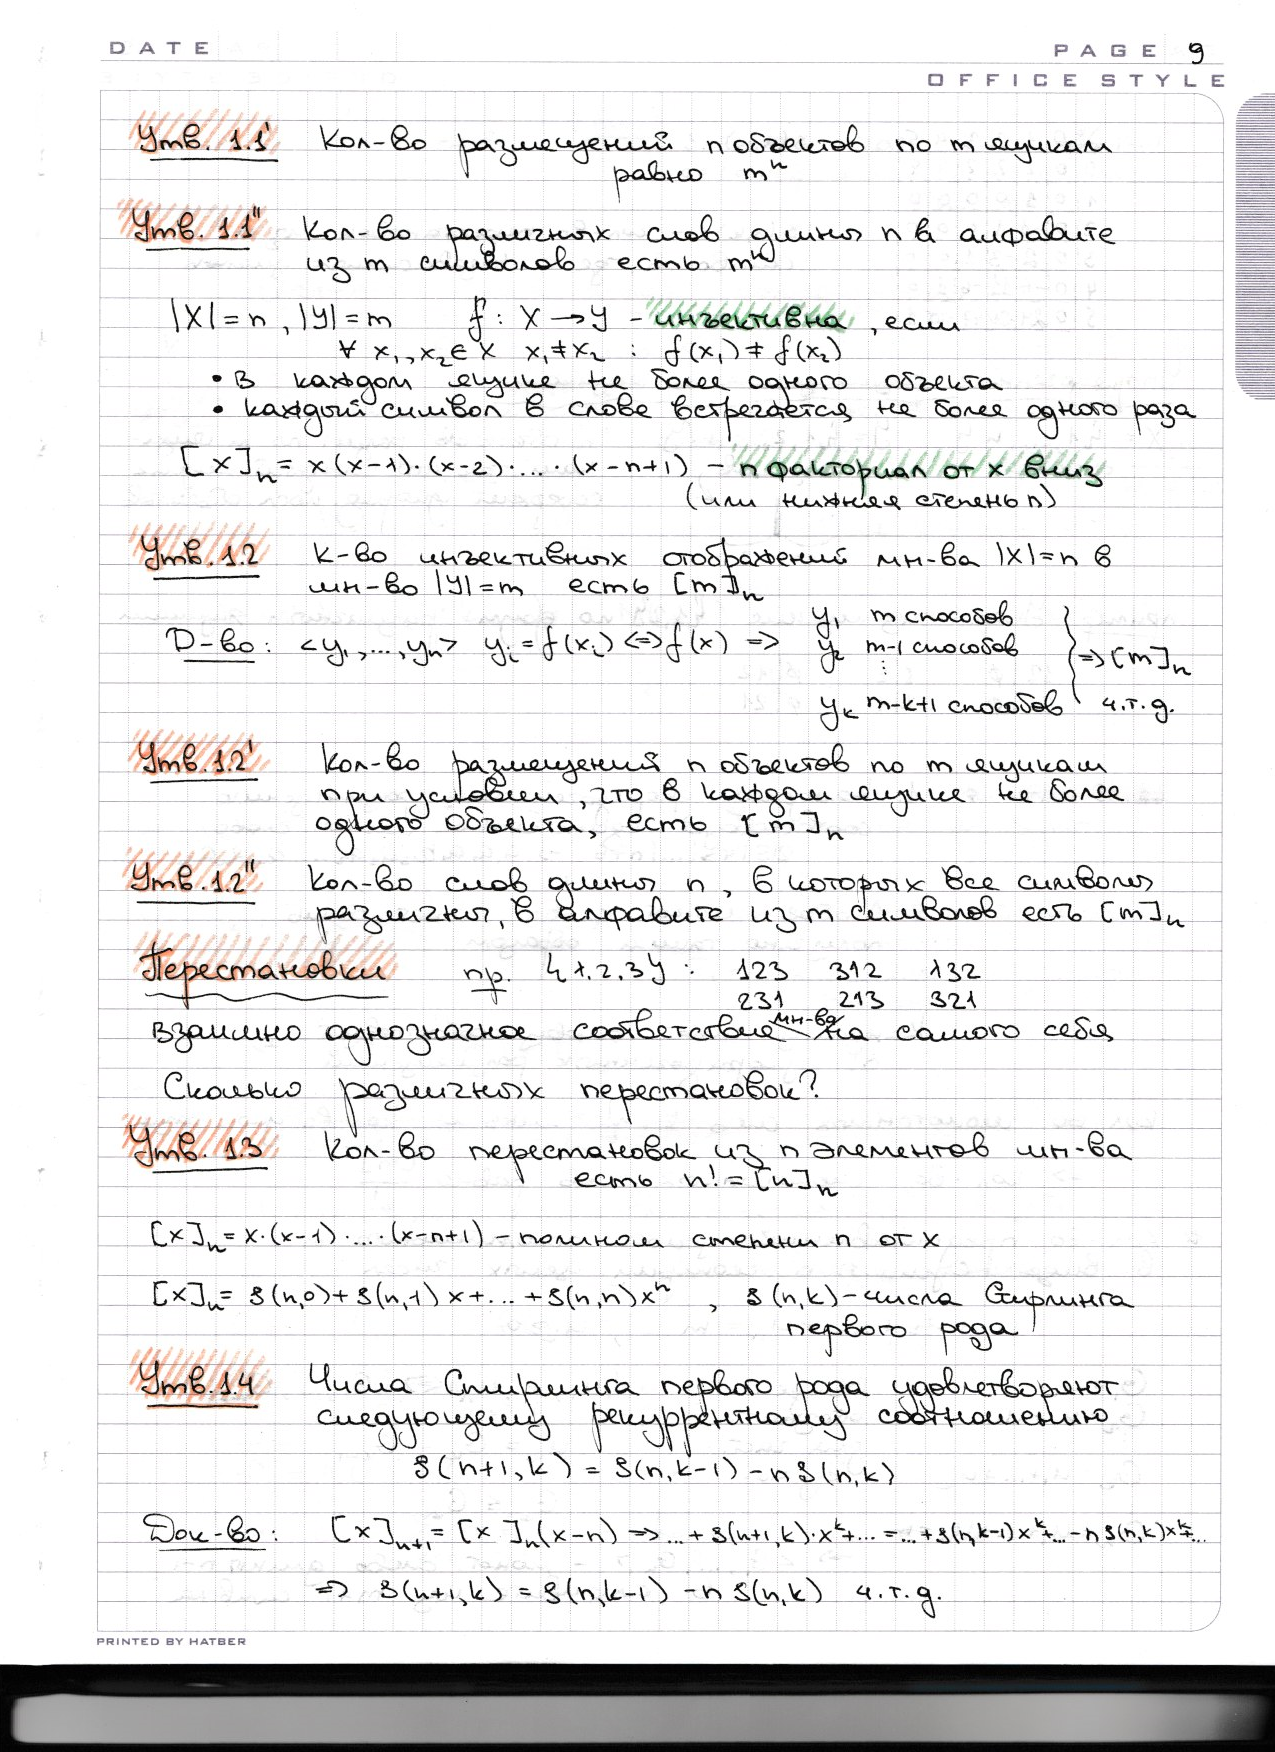 DATE
PAGE 9
OFFICE STYLE
Утв. 1.1' Кол-во размещений n объектов по m ящикам
равно mⁿ
Утв. 1.1'' Кол-во различных слов длины n в алфавите
из m символов есть mⁿ
|X|=n, |Y|=m f: X→Y - инъективна, если
∀ x₁, x₂ ∈ X x₁≠x₂ : f(x₁) ≠ f(x₂)
• в каждом ящике не более одного объекта
• каждый символ в слове встречается не более одного раза
[x]ₙ = x(x-1)·(x-2)·...·(x-n+1) - n факториал от x вниз
(или нижняя степень n)
Утв. 1.2 к-во инъективных отображений мн-ва |X|=n в
мн-во |Y|=m есть [m]ₙ
y₁ m способов
Д-во: <y₁,...,yₙ> yᵢ = f(xᵢ) <=> f(x) => y₂ m-1 способов => [m]ₙ
⋮
yₖ m-k+1 способов ч.т.д.
Утв. 1.2' Кол-во размещений n объектов по m ящикам
при условии, что в каждом ящике не более
одного объекта, есть [m]ₙ
Утв. 1.2'' Кол-во слов длины n, в которых все символы
различны, в алфавите из m символов есть [m]ₙ
Перестановки пр. {1,2,3} : 123 312 132
231 213 321
взаимно однозначное соответствие мн-ва на самого себя
Сколько различных перестановок?
Утв. 1.3 Кол-во перестановок из n элементов мн-ва
есть n! = [n]ₙ
[x]ₙ = x·(x-1)·...·(x-n+1) - полином степени n от x
[x]ₙ = s(n,0)+s(n,1)x+...+s(n,n)xⁿ , s(n,k)-числа Стирлинга
первого рода
Утв. 1.4 Числа Стирлинга первого рода удовлетворяют
следующему рекуррентному соотношению
s(n+1,k) = s(n,k-1) - n s(n,k)
Док-во: [x]ₙ₊₁ = [x]ₙ(x-n) => ...+s(n+1,k)·xᵏ+... = ...+s(n,k-1)xᵏ+...-n s(n,k)xᵏ+...
=> s(n+1,k) = s(n,k-1) - n s(n,k) ч.т.д.
PRINTED BY HATBER